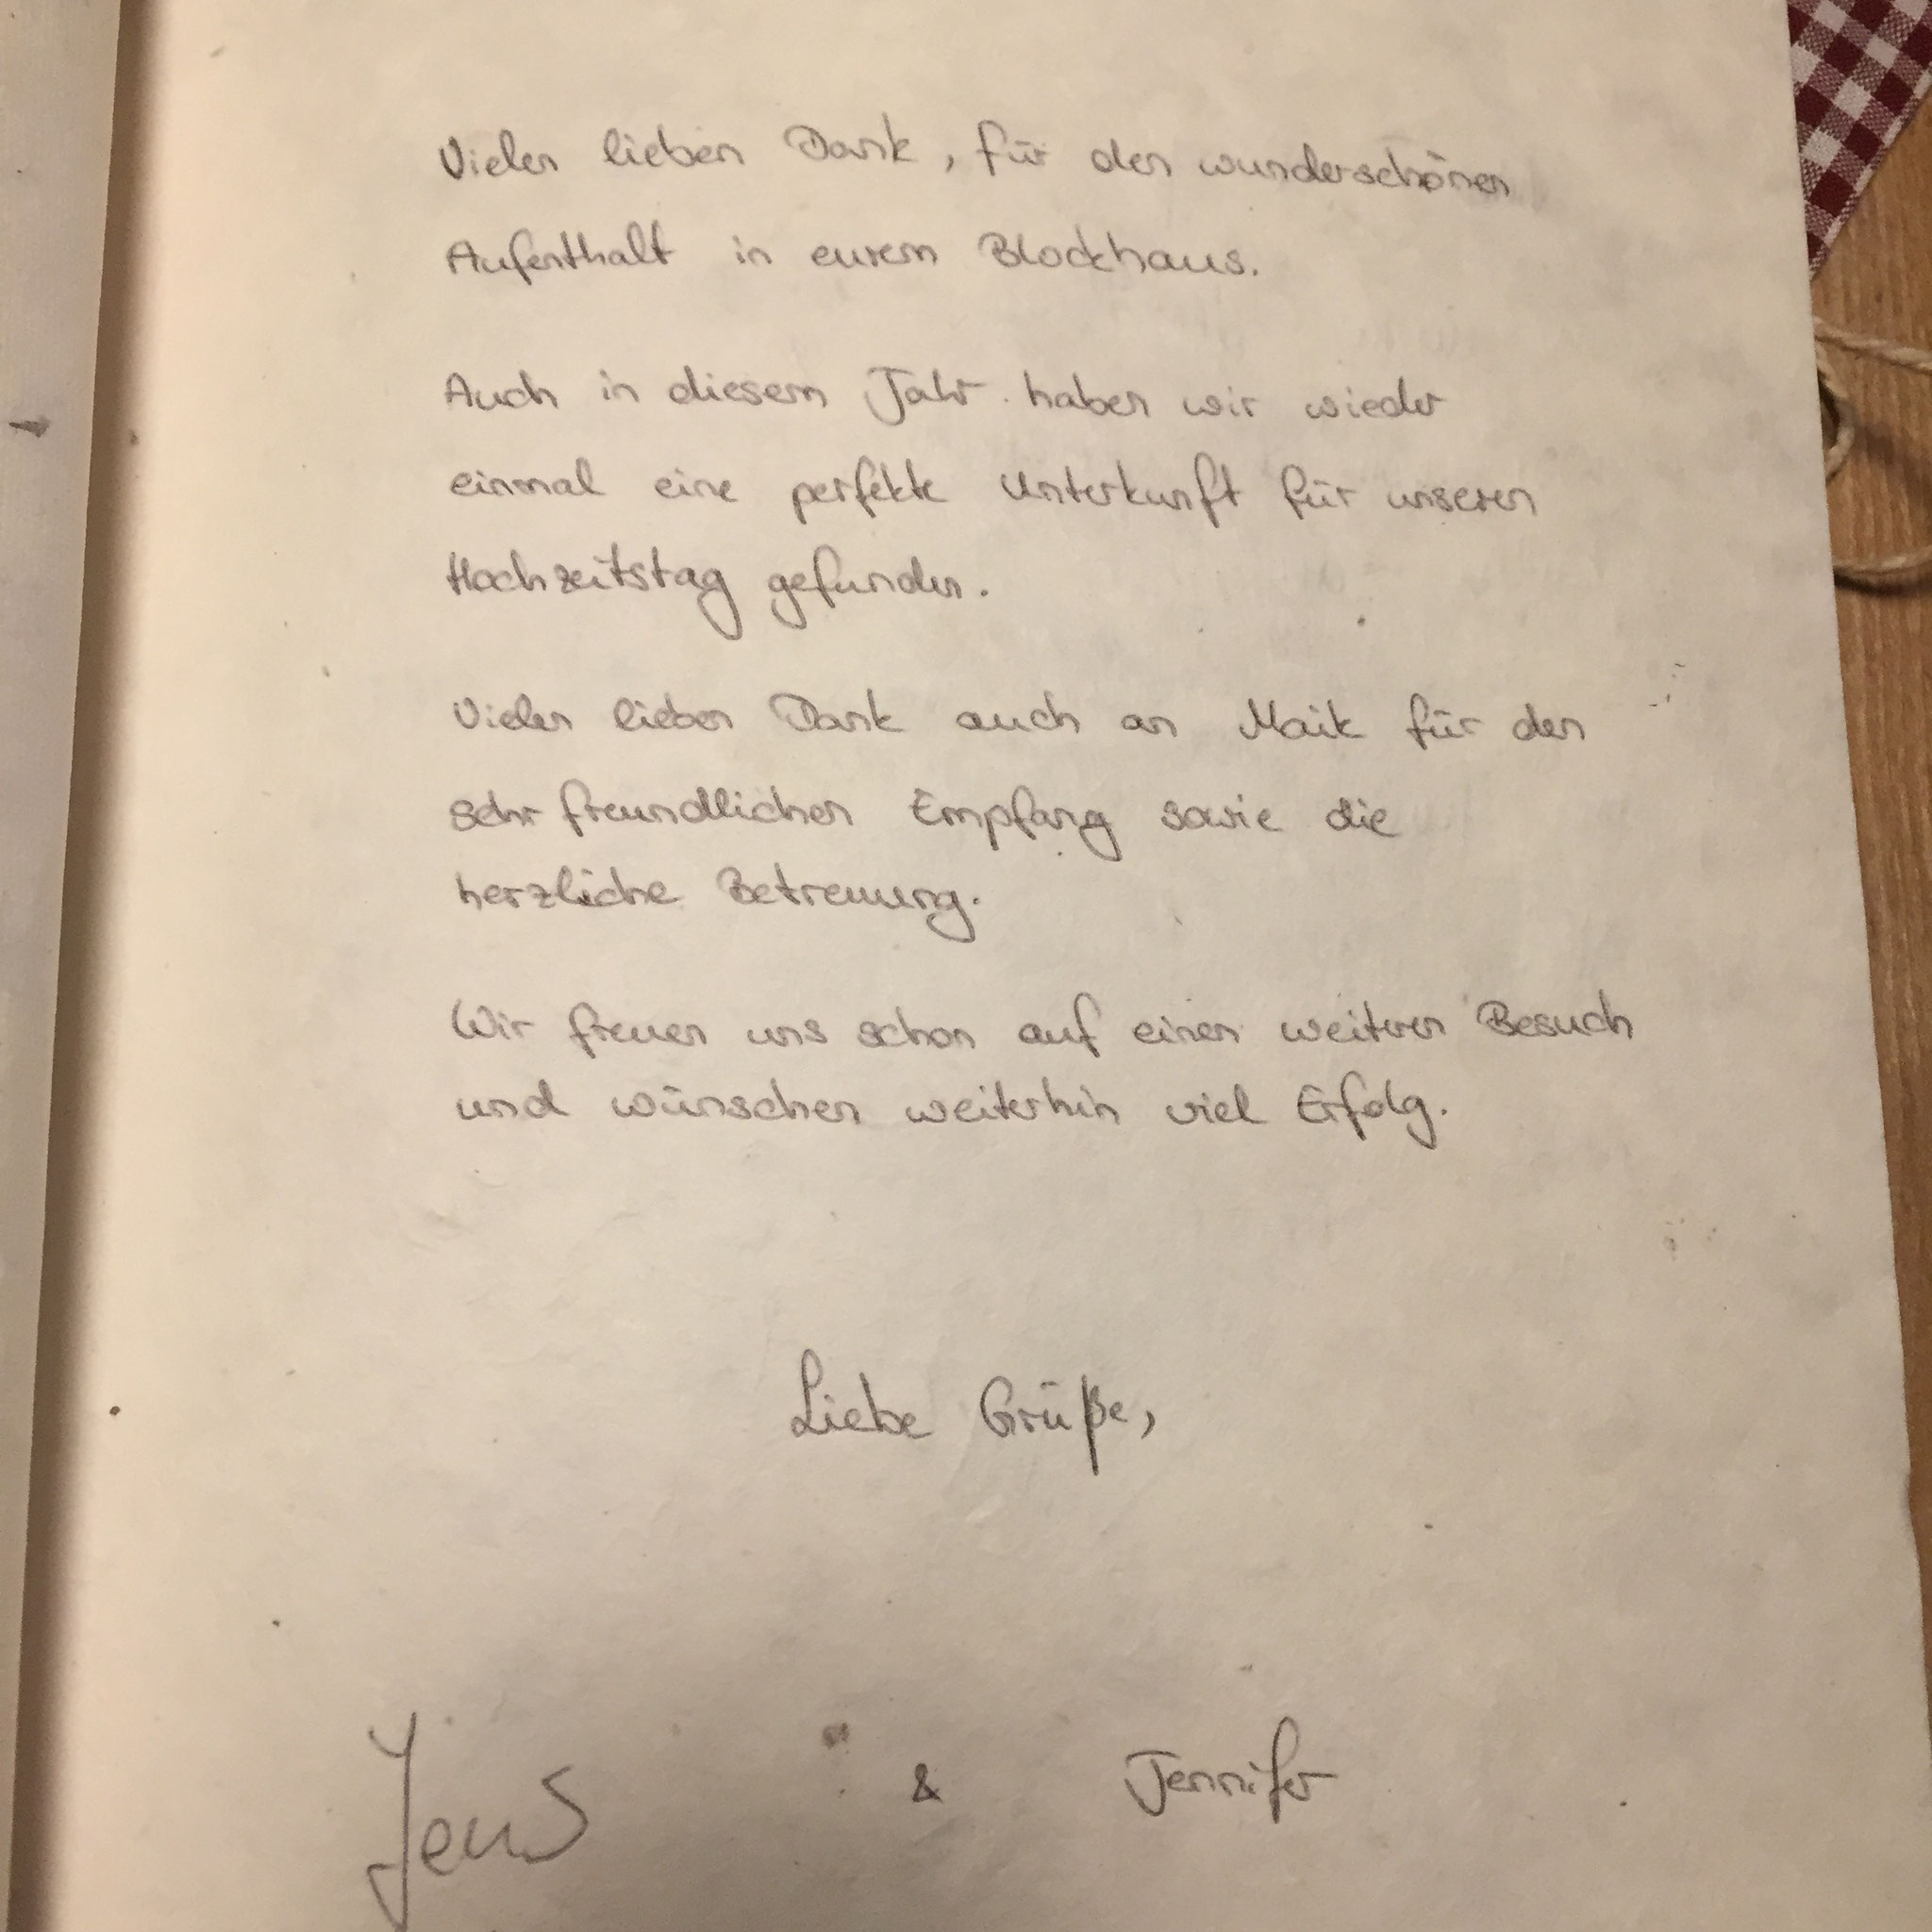 Vielen lieben Dank, für den wunderschönen
Aufenthalt in eurem Blockhaus.
Auch in diesem Jahr haben wir wieder
einmal eine perfekte Unterkunft für unseren
Hochzeitstag gefunden.
Vielen lieben Dank auch an Maik für den
sehr freundlichen Empfang sowie die
herzliche Betreuung.
Wir freuen uns schon auf einen weiteren Besuch
und wünschen weiterhin viel Erfolg.
Liebe Grüße,
Jens & Jennifer